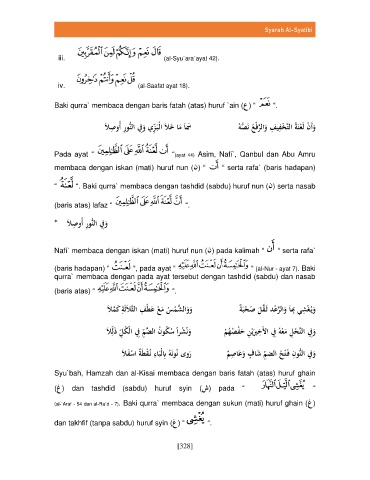 Syarah Al-Syatibi
iii. قَالَ نَعَمْ وَإِنَّكُمْ لَمِنَ ٱلْمُقَرَّبِينَ (al-Syu`ara`ayat 42).
iv. قُلْ نَعَمْ وَأَنتُمْ دَاخِرُونَ (al-Saafat ayat 18).
Baki qurra` membaca dengan baris fatah (atas) huruf `ain (ع) “ نَعَمْ ”.
وَأَنْ لَعْنَةُ التَّخْفِيفِ وَالرَّفْعِ نَصُّهُ سَمَا مَا خَلاَ الْبَزِّي وَفِي النُّورِ أُوصِلاَ
Pada ayat “ أَن لَّعْنَةُ ٱللَّهِ عَلَى ٱلظَّـٰلِمِينَ ”(ayat 44) Asim, Nafi`, Qanbul dan Abu Amru
membaca dengan iskan (mati) huruf nun (ن) “ أَن ” serta rafa` (baris hadapan)
“ لَّعْنَةُ ”. Baki qurra` membaca dengan tashdid (sabdu) huruf nun (ن) serta nasab
(baris atas) lafaz “ أَنَّ لَّعْنَةَ ٱللَّهِ عَلَى ٱلظَّـٰلِمِينَ ”.
* وَفِي النُّورِ أُوصِلاَ
Nafi` membaca dengan iskan (mati) huruf nun (ن) pada kalimah “ أَن ” serta rafa`
(baris hadapan) “ لَعْنَتُ ”, pada ayat “ وَٱلْخَـٰمِسَةُ أَن لَعْنَتُ ٱللَّهِ عَلَيْهِ ” (al-Nur - ayat 7). Baki
qurra` membaca dengan pada ayat tersebut dengan tashdid (sabdu) dan nasab
(baris atas) “ وَٱلْخَـٰمِسَةُ أَنَّ لَعْنَتَ ٱللَّهِ عَلَيْهِ ”.
وَيُغْشِي بِهَا وَالرَّعْدِ ثَقَّلَ صُحْبَةٌ وَوَالشَّمْسُ مَعْ عَطْفِ الثَّلاَثَةِ كَمَّلاَ
وَفِي النَّحْلِ مَعْهُ فِي الأَخِيرَيْنِ حَفْصُهُمْ وَنُشْراً سُكُونُ الضَّمِّ فِي الْكُلِّ ذُلِّلاَ
وَفِي النُّونِ فَتْحُ الضَّمِّ شَافٍ وَعَاصِمٌ رَوَى نُونَهُ بِالْبَاءِ نُقْطَةٌ اسْفَلاَ
Syu`bah, Hamzah dan al-Kisai membaca dengan baris fatah (atas) huruf ghain
(غ) dan tashdid (sabdu) huruf syin (ش) pada “ يُغَشِّى ٱلَّيْلَ ٱلنَّهَارَ ”
(al-`Araf - 54 dan al-Ra'd - 7). Baki qurra` membaca dengan sukun (mati) huruf ghain (غ)
dan takhfif (tanpa sabdu) huruf syin (غ) “ يُغْشِى ”.
[328]